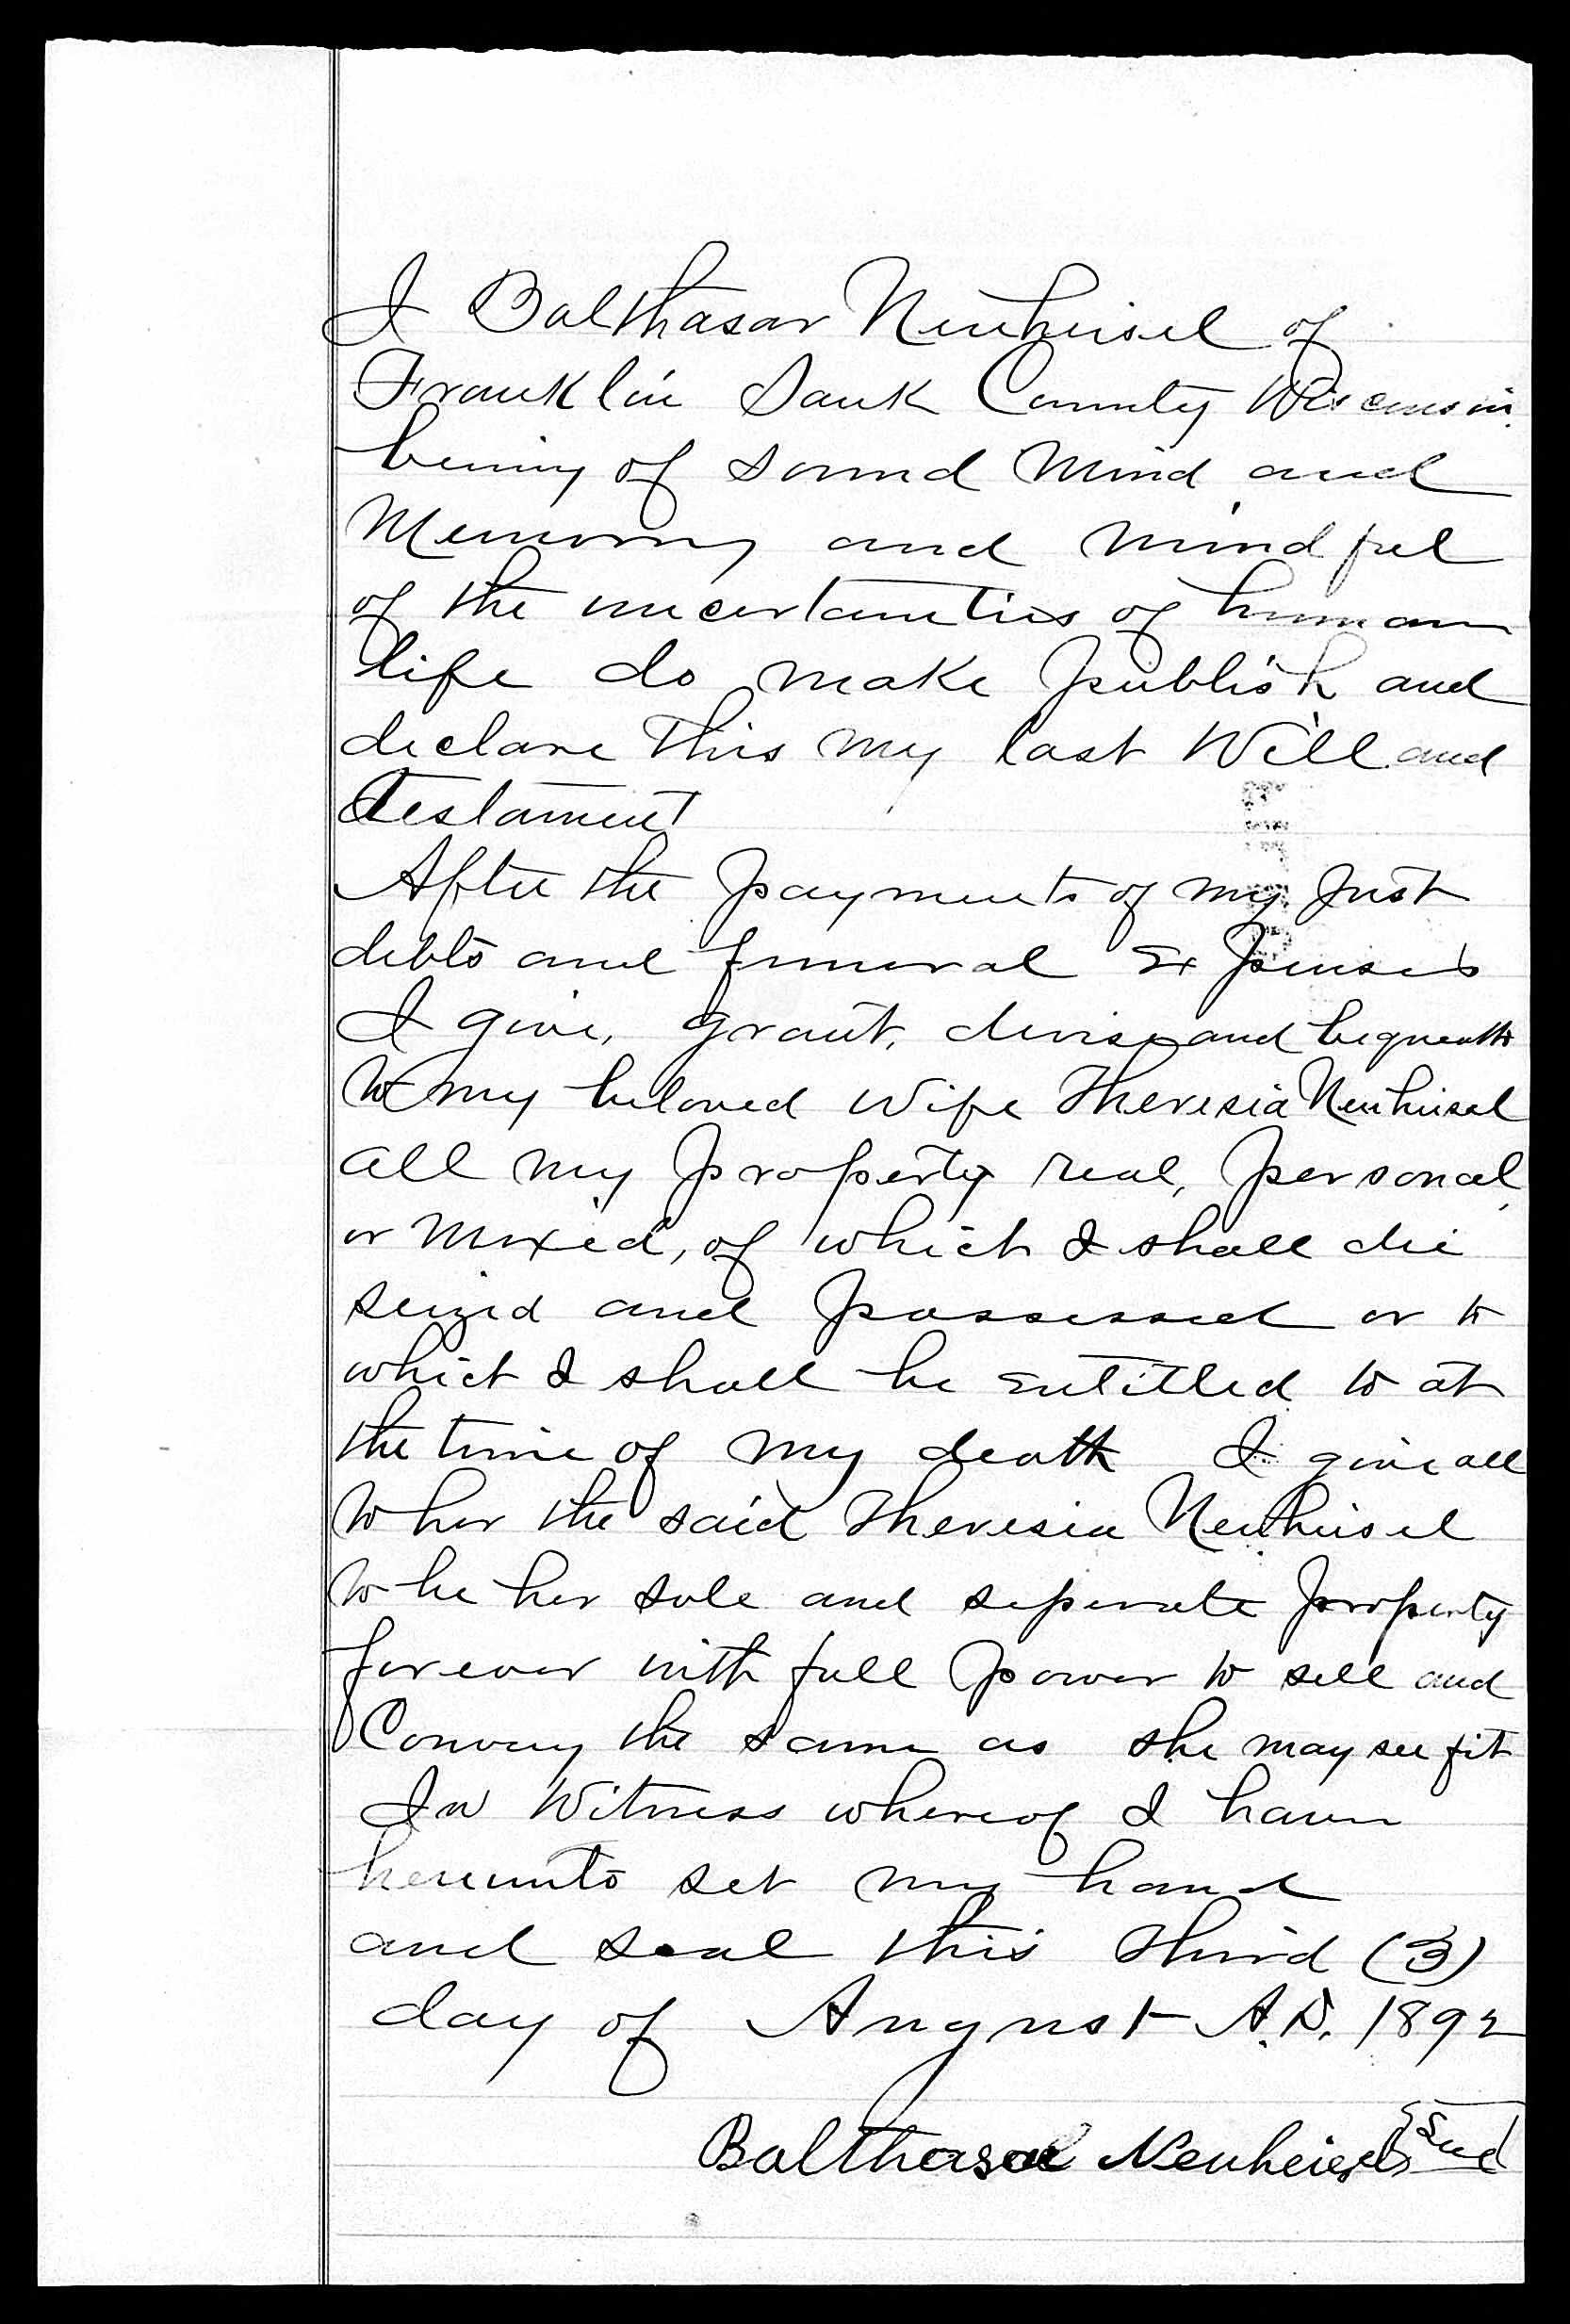 I Balthasar Neuheisel of
Franklin Sauk County Wisconsin
being of sound Mind and
Memory and mindful
of the uncertainties of human
life do make publish and
declare this my last Will and
Testament
After the payments of my just
debts and funeral Expenses
I give, grant, devise and bequeath
to my beloved Wife Theresia Neuheisel
all my property real, personal,
or Mixed, of which I shall die
seized and possessed or to
which I shall be Entitled to at
the time of my death I give all
to her the said Theresia Neuheisel
to be her sole and seperate property
forever with full power to sell and
Convey the same as she may see fit
In Witness whereof I have
hereunto set my hand
and seal this third (3)
day of August A.D. 1892
Balthasar Neuheisel Seal